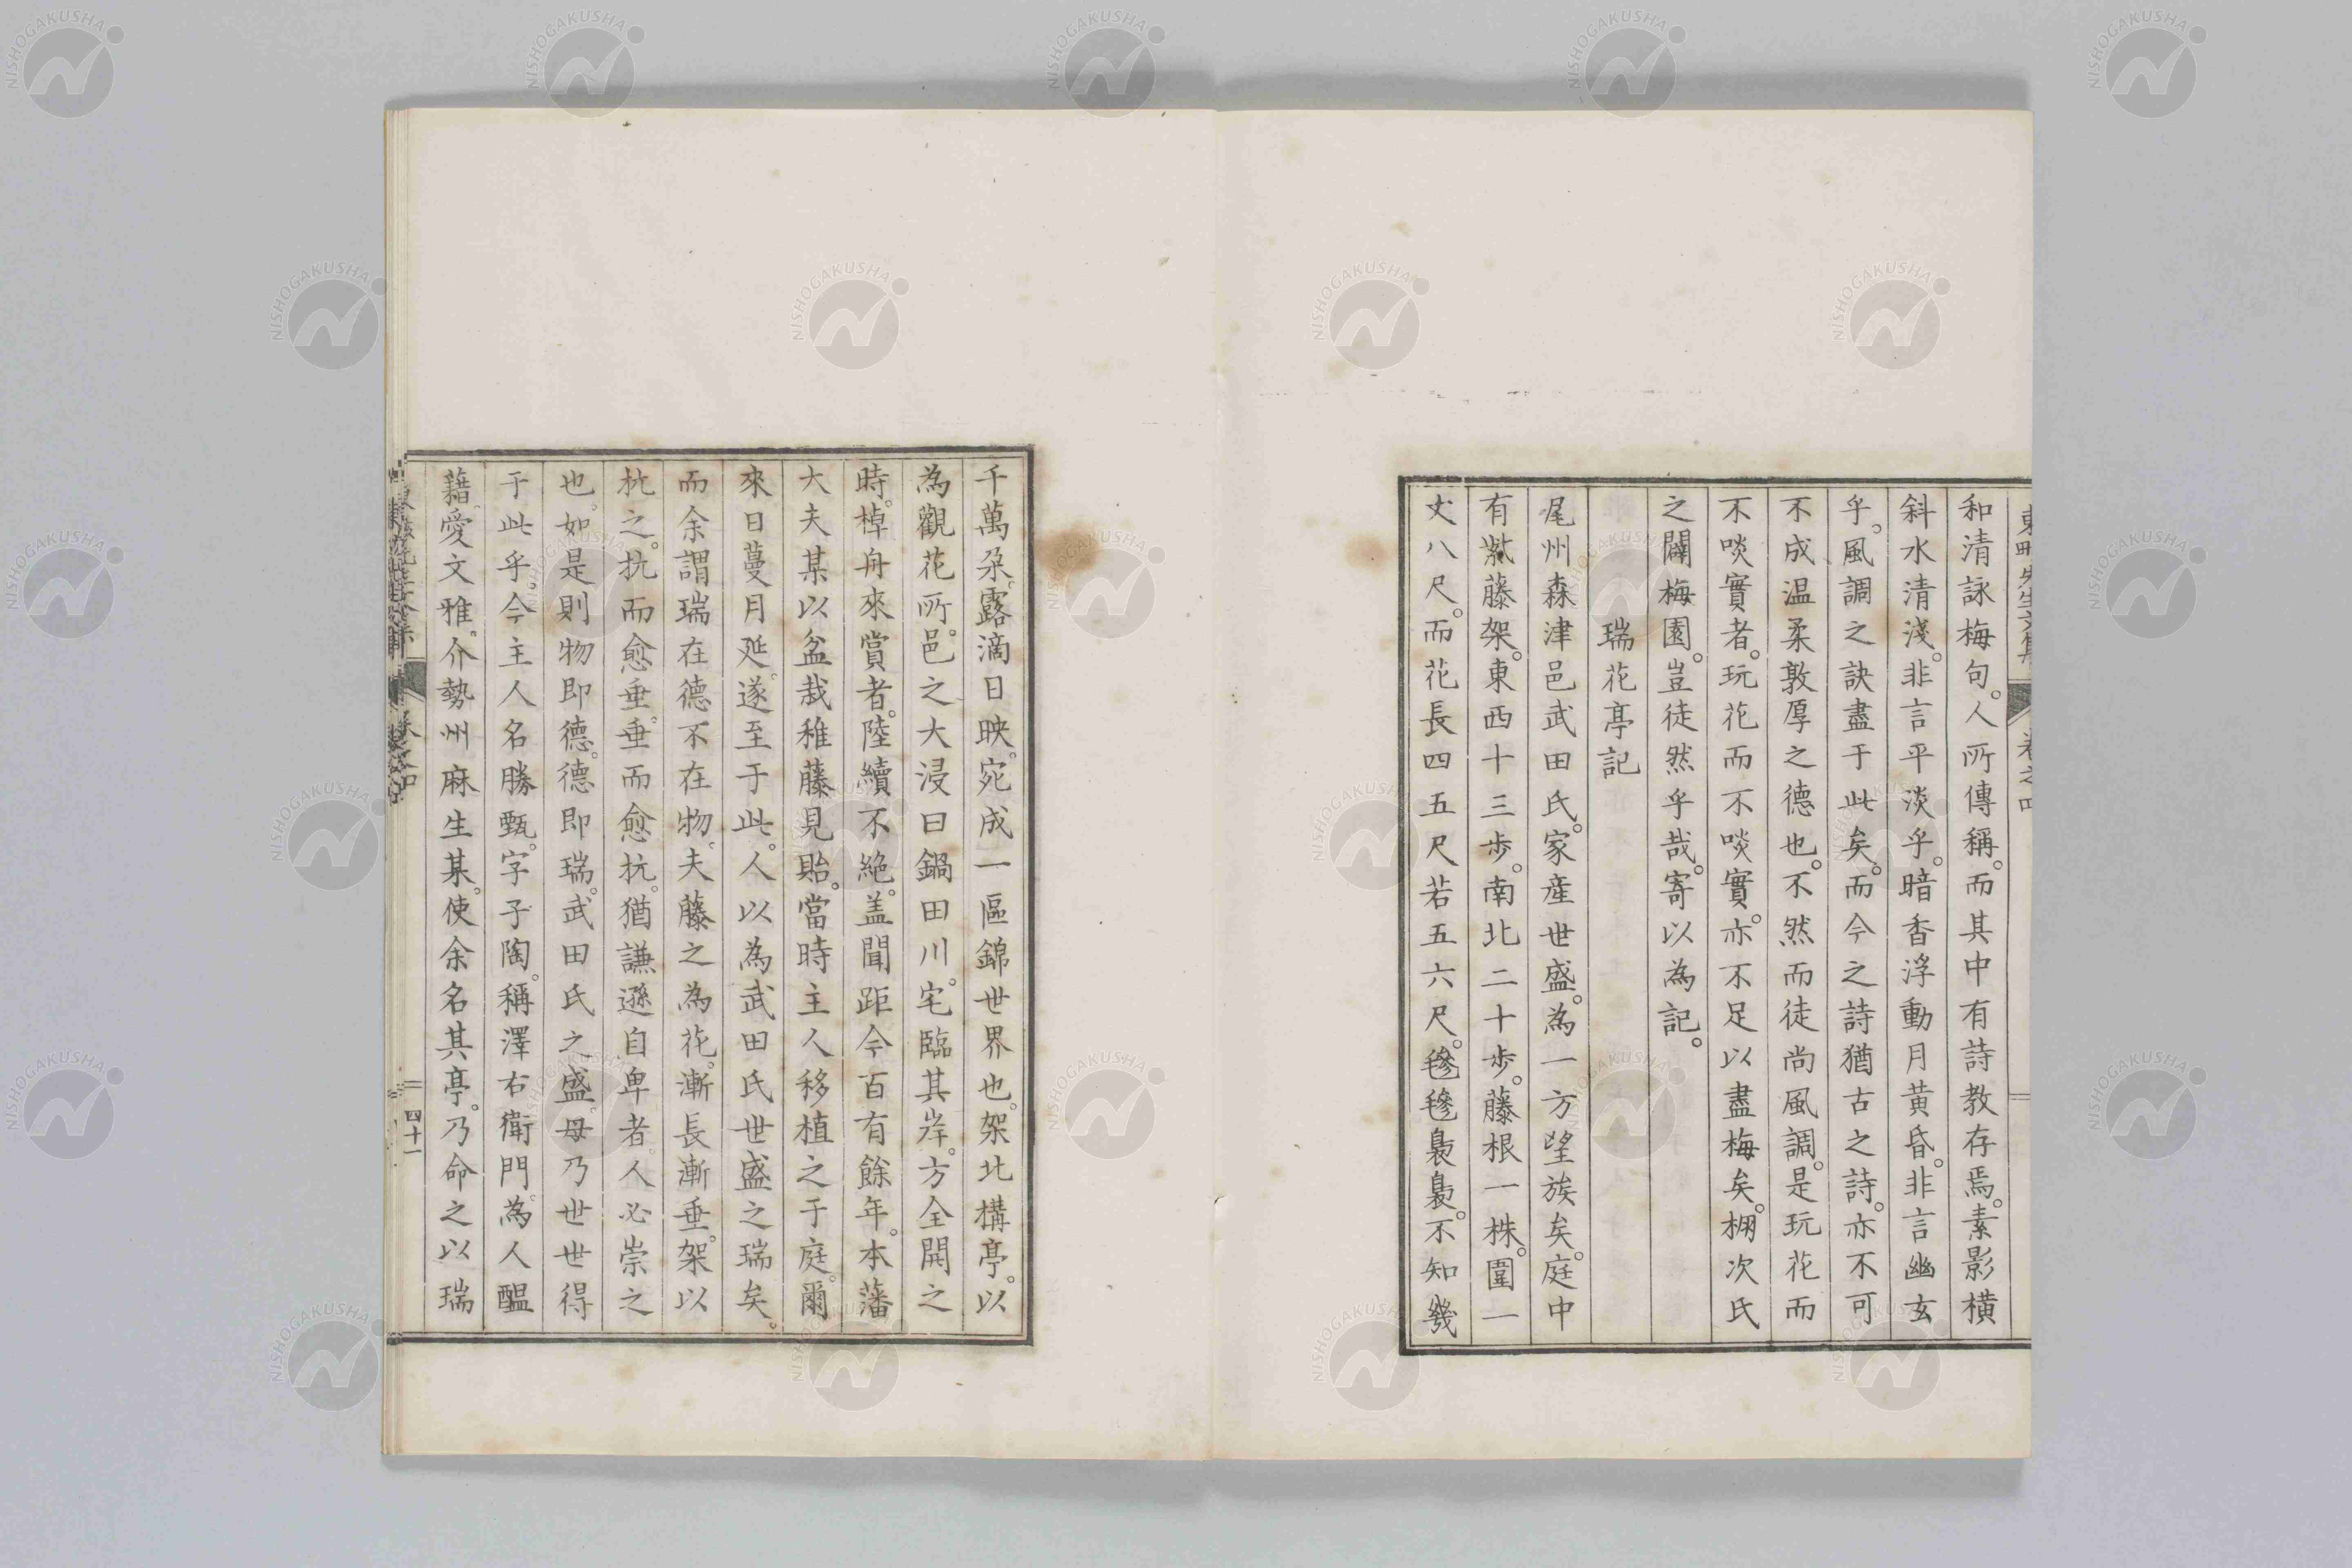 和清詠梅句。人所傳稱。而其中有詩教存焉。素影橫
斜水清淺。非言平淡乎。暗香浮動月黃昏。非言幽玄
乎。風調之訣盡于此矣。而今之詩猶古之詩。亦不可
不成温柔敦厚之德也。不然而徒尚風調。是玩花而
不啖實者。玩花而不啖實。亦不足以盡梅矣。棚次氏
之闢梅園。豈徒然乎哉。寄以為記。
瑞花亭記
尾州森津邑武田氏。家産世盛。為一方望族矣。庭中
有紫藤架。東西十三步。南北二十步。藤根一株。圍一
丈八尺。而花長四五尺若五六尺。毿毿裊裊。不知幾
千萬朵。露滴日映。宛成一區錦世界也。架北構亭。以
為觀花所。邑之大浸曰鍋田川。宅臨其岸。方全開之
時。棹舟來賞者。陸續不絶。盖聞距今百有餘年。本藩
大夫某以盆栽稚藤見貽。當時主人移植之于庭。爾
來日蔓月延。遂至于此。人以為武田氏世盛之瑞矣。
而余謂瑞在德不在物。夫藤之為花。漸長漸垂。架以
抗之。抗而愈垂。垂而愈抗。猶謙遜自卑者。人必崇之
也。如是則物即德。德即瑞。武田氏之盛。毋乃世世得
于此乎。今主人名勝甄。字子陶。稱澤右衛門。為人醞
藉。愛文雅。介勢州麻生某。使余名其亭。乃命之以瑞
卷之四
四十一
NISHOGAKUSHA